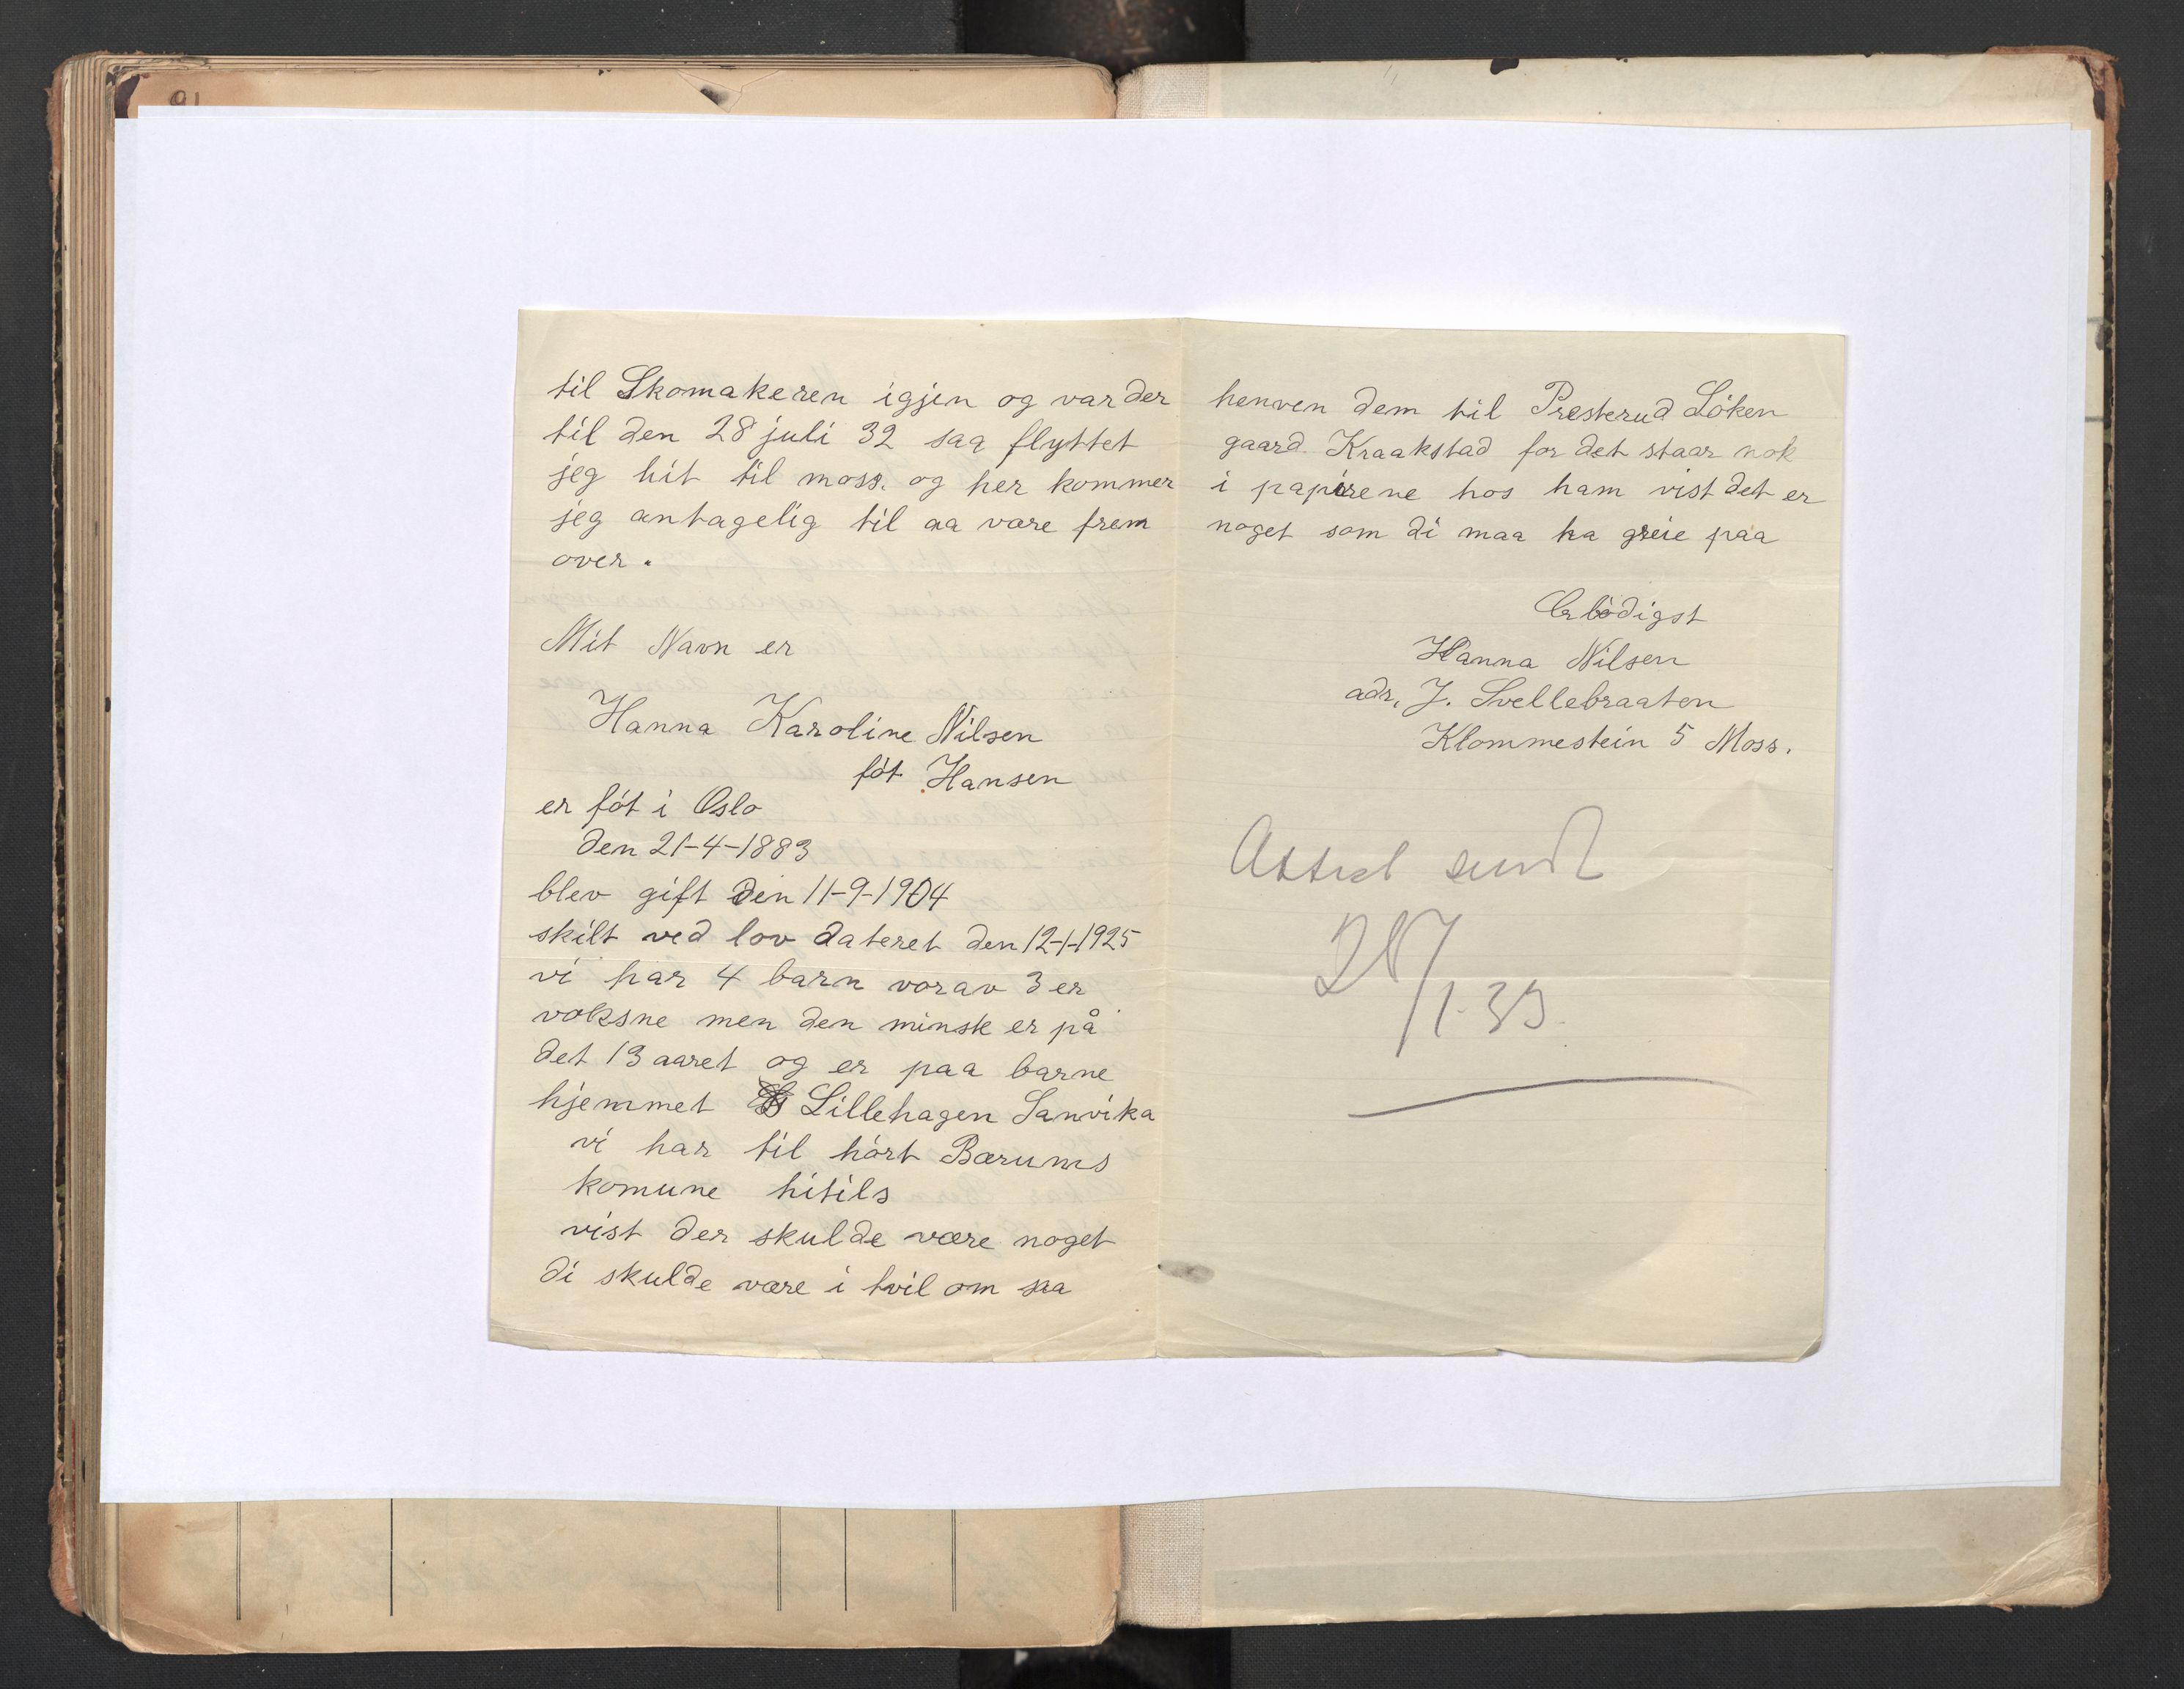 til Skomakeren igjen og var der
til den 28 juli 32 saa flyttet
jeg hit til moss. og her kommer
jeg antagelig til aa være frem
over.
Mit Navn er
Hanna Karoline Nilsen
föt Hansen
er föt i Oslo
den 21-4-1883
blev gift den 11-9-1904
skilt ved lov dateret den 12-1-1925
vi har 4 barn vorav 3 er
voksne men den minste er på
det 13 aaret og er paa barne
hjemmet Lillehagen Sanvika
vi har til hört Bærums
komune hitils
vist der skulde være noget
di skulde være i tvil om saa
henven dem til Presterud Löken
gaard. Kraakstad for det staar nok
i papirene hos ham vist det er
noget som di maa ha greie paa
Erbödigst
Hanna Nilsen
adr, J. Svellebraaten
Klommestein 5 Moss.
Attest sendt
28/1-35.